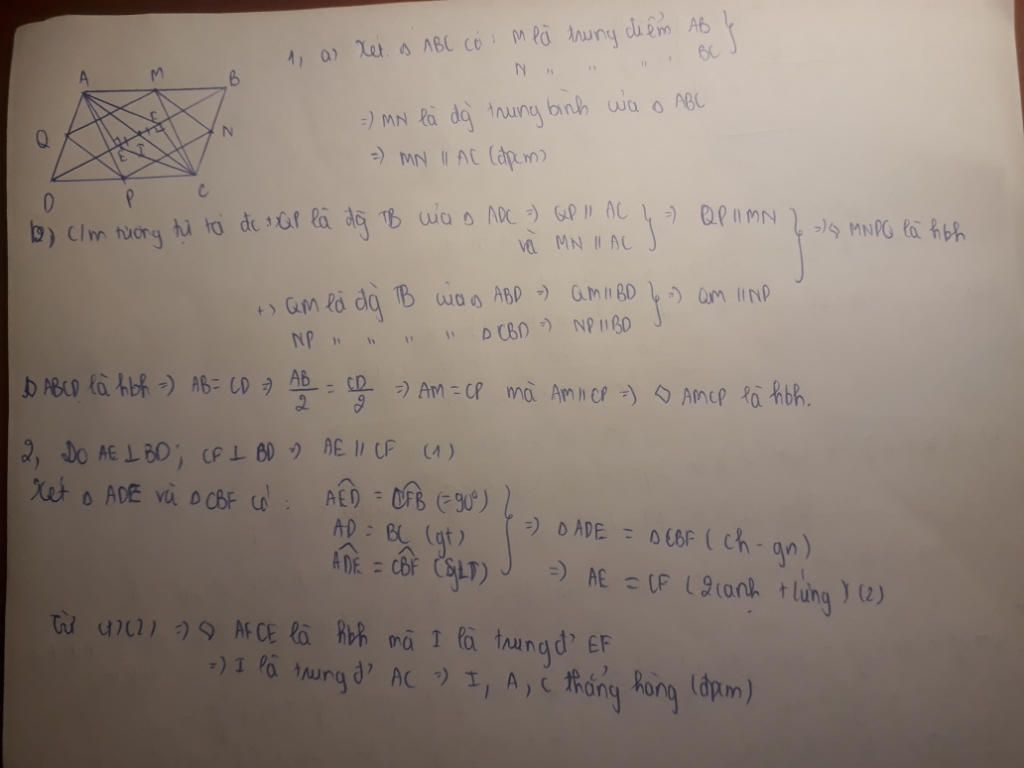 1, a) Xét Δ ABC có: M là trung điểm AB }
N " " " " BC
A M B
Q F N
E I
D P C
=> MN là đg trung bình của Δ ABC
=> MN // AC (đpcm)
b) C/m tương tự ta đc: QP là đg TB của Δ ADC => QP // AC } => QP // MN } => ◇ MNPQ là hbh
và MN // AC
+) QM là đg TB của Δ ABD => QM // BD } => QM // NP
NP " " " " ΔCBD => NP // BD
ABCD là hbh => AB = CD => AB/2 = CD/2 => AM = CP mà AM // CP => ◇ AMCP là hbh.
2, Do AE ⊥ BD; CF ⊥ BD => AE // CF (1)
Xét Δ ADE và ΔCBF có: AED = CFB (=90°) }
AD = BC (gt) => Δ ADE = ΔCBF (ch - gn)
ADE = CBF (SLT) => AE = CF (2 cạnh tứng) (2)
Từ (1)(2) => ◇ AFCE là hbh mà I là trung đ' EF
=> I là trung đ' AC => I, A, C thẳng hàng (đpcm)